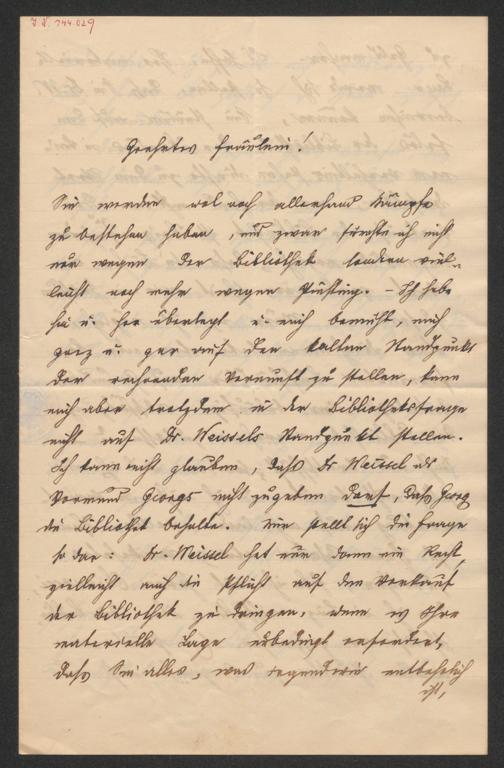 I.N. 144.029
Geehrtes Fräulein!
Sie werden wol noch allerhand Kämpfe
zu bestehen haben, und zwar fürchte ich nicht
nur wegen der Bibliothek sondern viel-
leicht noch mehr wegen Pischling. – Ich habe
hin u. her überlegt u. mich bemüht, mich
ganz u. gar auf den kalten Standpunkt
der rechnenden Vernunft zu stellen, kann
mich aber trotzdem in der Bibliotheksfrage
nicht auf Dr. Weissels Standpunkt stellen.
Ich kann nicht glauben, daß Dr Weissel als
Vormund Georgs nicht zugeben darf, daß Georg
die Bibliothek behalte. Mir stellt sich die Frage
so dar: Dr. Weissel hat nur dann ein Recht,
vielleicht auch die Pflicht auf den Verkauf
der Bibliothek zu dringen, wenn es Ihre
materielle Lage unbedingt erfordert,
daß Sie alles, was irgendwie entbehrlich
ist,